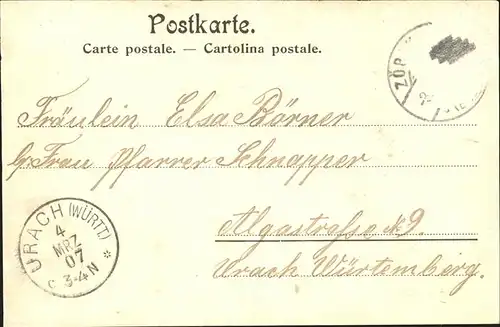 Postkarte.
Carte postale. — Cartolina postale.
ZÜR
Fräulein Elsa Börner
b/Frau Pfarrer Schnapper
Algastrasse No 9.
Urach Würtemberg.
URACH (WÜRTT.)
4
MRZ
07
C 3-4 N